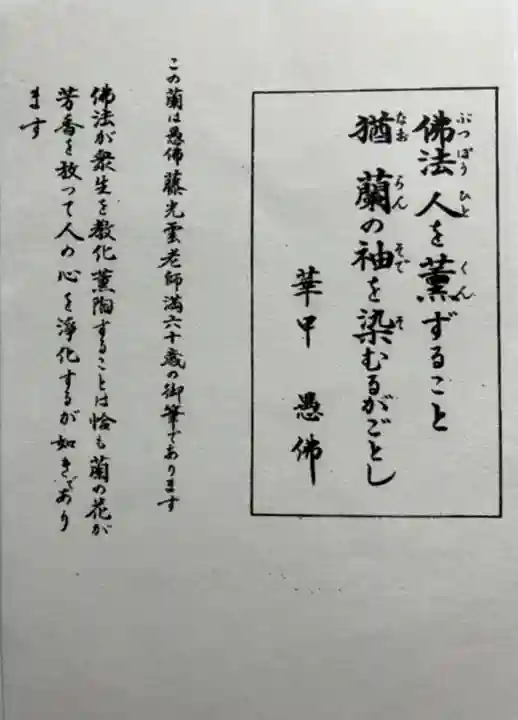 佛法人を薫ずること
猶蘭の袖を染むるがごとし
華甲 愚佛
この蘭は愚佛藤光雲老師満六十歳の御筆であります
佛法が衆生を教化薫陶することは恰も蘭の花が
芳香を放って人の心を浄化するが如きであり
ます